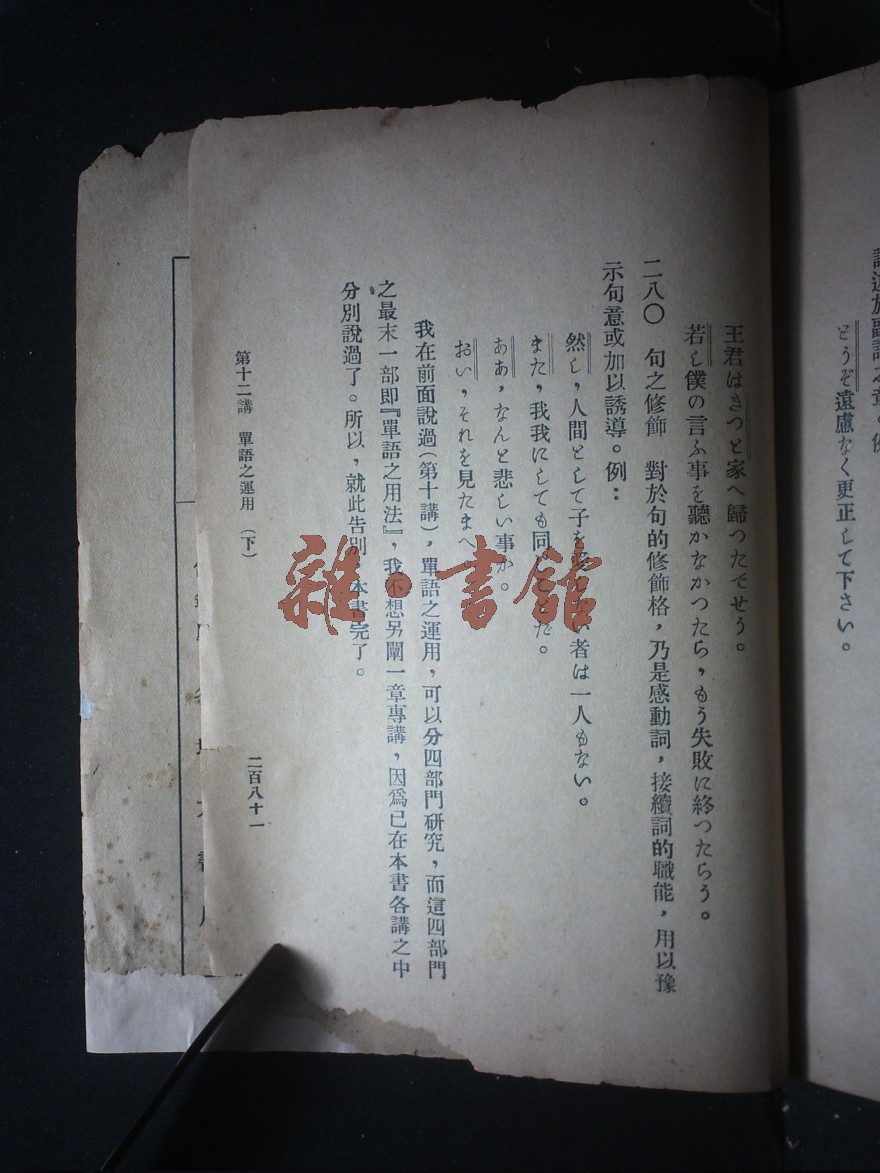 どうぞ遠慮なく更正して下さい。
王君はきつと家へ歸つたでせう。
若し僕の言ふ事を聽かなかつたら，もう失敗に終つたらう。
二八〇　句之修飾　對於句的修飾格，乃是感動詞，接續詞的職能，用以豫
示句意或加以誘導。例：
然し，人間として子を ない者は一人もない。
また，我我にしても同じ だ。
ああ，なんと悲しい事か。
おい，それを見たまへ
我在前面說過（第十講），單語之運用，可以分四部門研究，而這四部門
之最末一部即『單語之用法』，我不想另闢一章專講，因爲已在本書各講之中
分別說過了。所以，就此告別 本書完了。
第十二講　單語之運用　（下）
二百八十一
雜·書館